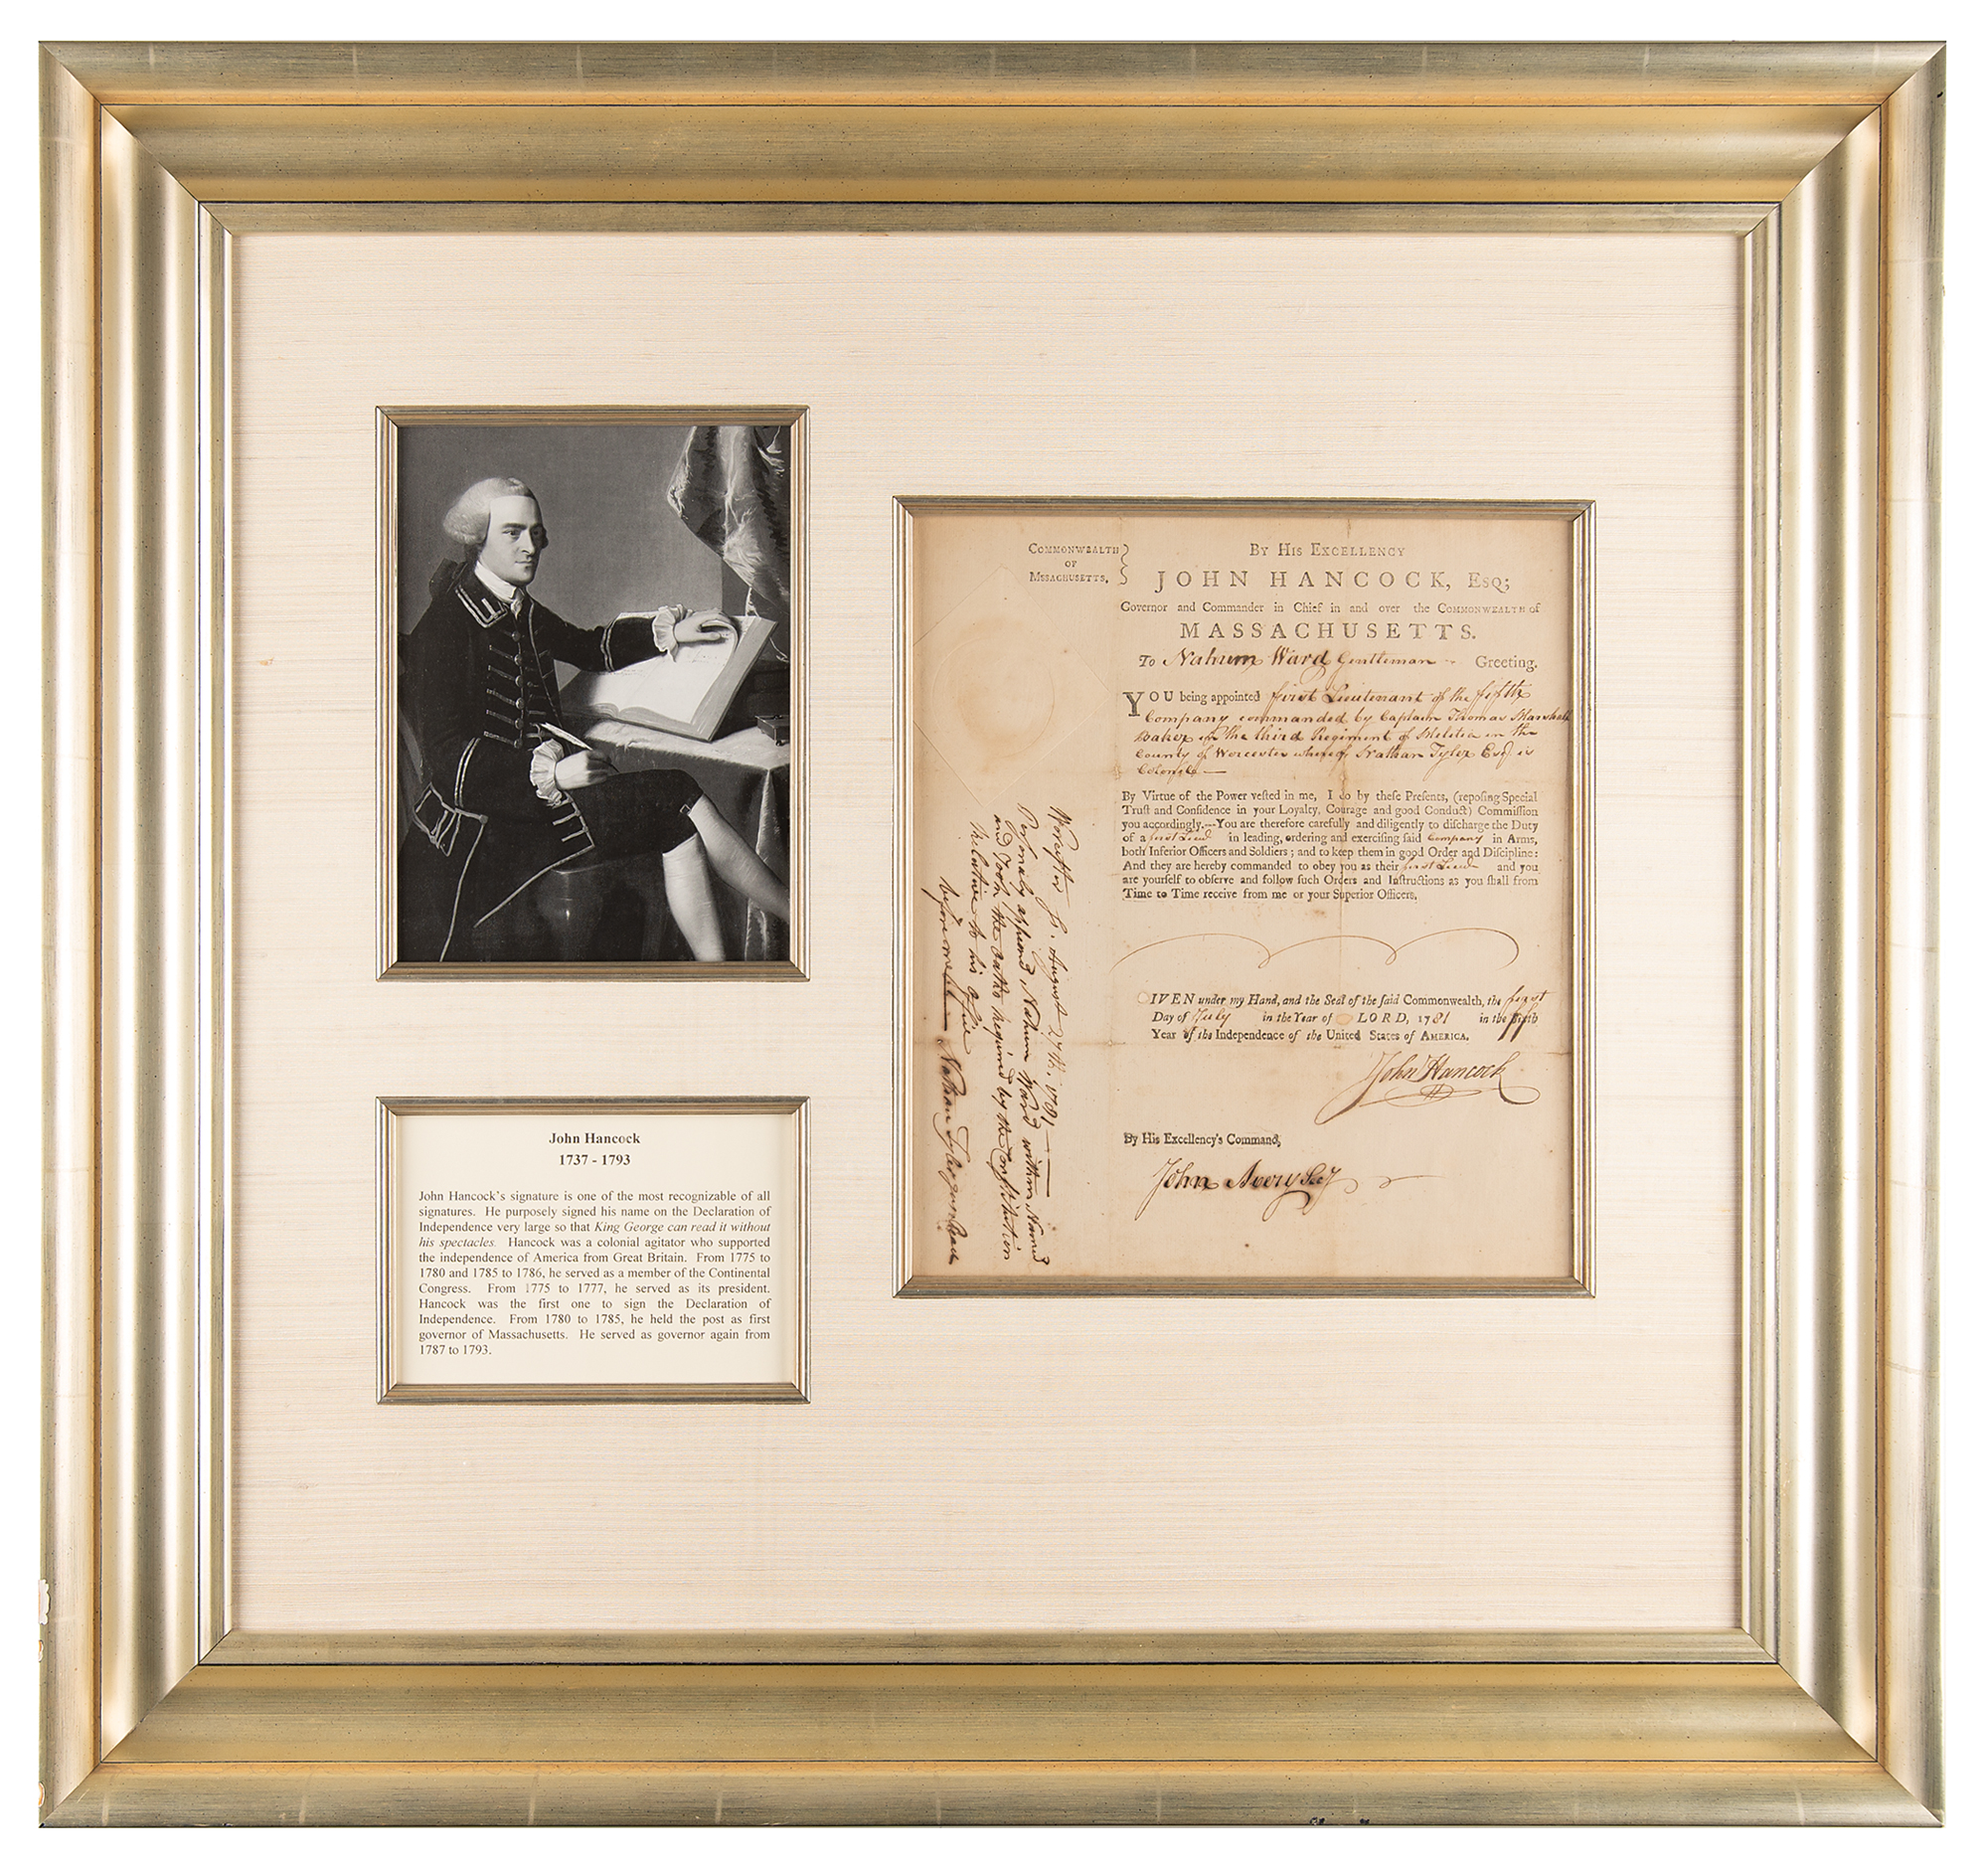 John Hancock
1737 - 1793
John Hancock's signature is one of the most recognizable of all
signatures. He purposely signed his name on the Declaration of
Independence very large so that King George can read it without
his spectacles. Hancock was a colonial agitator who supported
the independence of America from Great Britain. From 1775 to
1780 and 1785 to 1786, he served as a member of the Continental
Congress. From 1775 to 1777, he served as its president.
Hancock was the first one to sign the Declaration of
Independence. From 1780 to 1785, he held the post as first
governor of Massachusetts. He served as governor again from
1787 to 1793.
COMMONWEALTH
OF
MASSACHUSETTS.
BY HIS EXCELLENCY
JOHN HANCOCK, ESQ;
Governor and Commander in Chief in and over the COMMONWEALTH of
MASSACHUSETTS.
To Nahum Ward Gentleman Greeting.
YOU being appointed first Lieutenant of the fifth
Company commanded by Captain Thomas Marshall
Baker in the third Regiment of Militia in the
County of Worcester whereof Nathan Tyler Esqr is
Colonel—
By Virtue of the Power veſted in me, I do by theſe Preſents, (repoſing Special
Truſt and Confidence in your Loyalty, Courage and good Conduct) Commiſſion
you accordingly.—You are therefore carefully and diligently to diſcharge the Duty
of a first Lieut in leading, ordering and exerciſing ſaid Company in Arms,
both Inferior Officers and Soldiers; and to keep them in good Order and Diſcipline:
And they are hereby commanded to obey you as their first Lieut and you
are yourſelf to obſerve and follow ſuch Orders and Inſtructions as you ſhall from
Time to Time receive from me or your Superior Officers.
IVEN under my Hand, and the Seal of the ſaid Commonwealth, the first
Day of July in the Year of LORD, 1781 in the Sixth
Year of the Independence of the United States of AMERICA.
John Hancock
By His Excellency's Command,
John Avery Secy
Worcester Ss. August 27th. 1781—
Personaly appeared Nahum Ward within Named
and Took the oaths required by the Constitution
Relative to his office
before me— Nathan Tyler